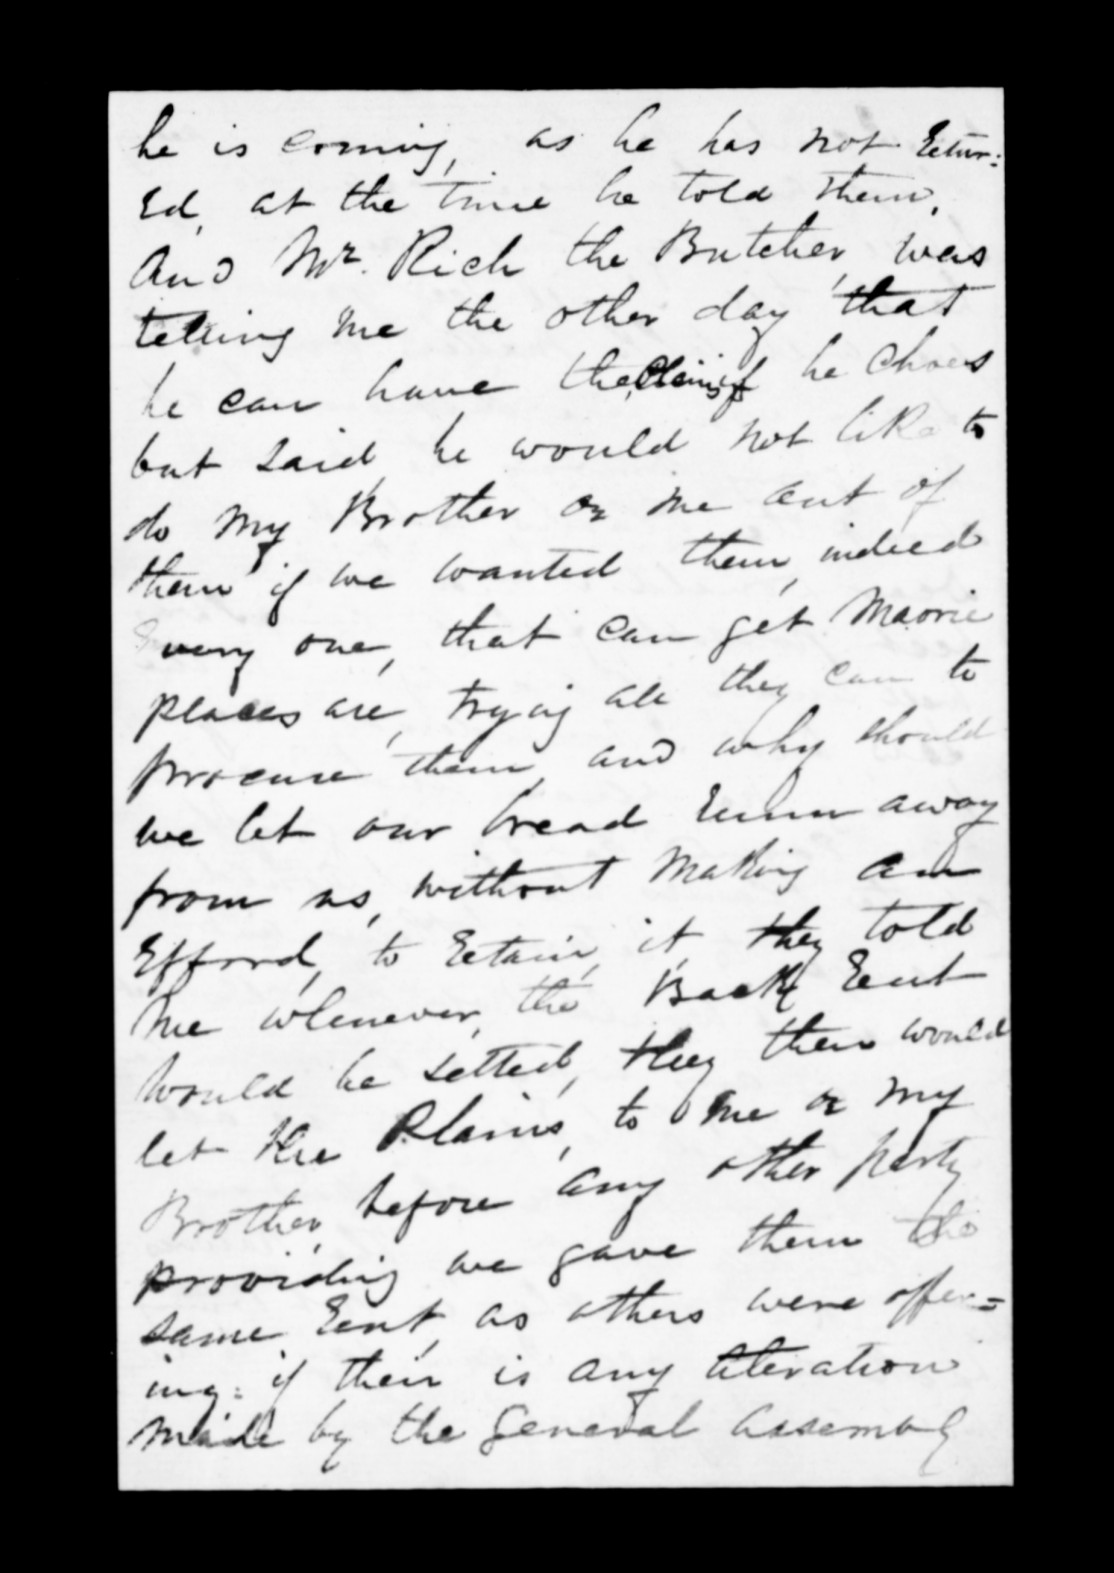 he is coming, as he has not Retur=
ed, at the time he told them,
And Mr. Rich the Butcher, was
telling me the other day, that
he can have the Plains if he choes
but said, he would not like to
do my Brother or me out of
them if we wanted them, indeed
Every one, that can get Maorie
places are, trying all they can to
procure them, and why should
we let our bread Runn away
from us, without making an
Efford, to Retain, it, they told
me whenever, the Back Rent
would be setted, they then would
let the Plains, to me or my
Brother, before any other party
providing we gave them the
same Rent, as others were offer=
ing: if their is any alteration
made by the General Assembly